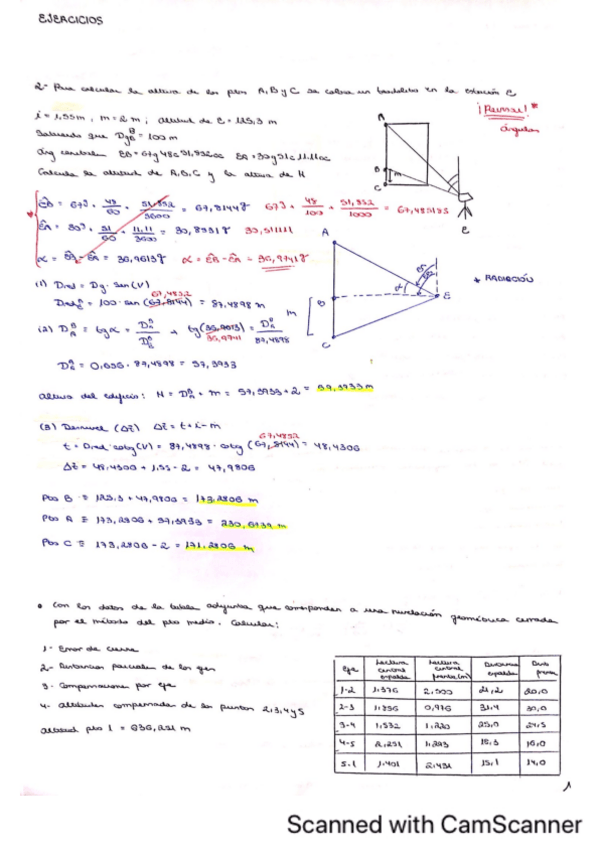 EJERCICIOS
2- Para calcular la altura de los ptos A, B y C se coloca un taquímetro en la estación E
i = 1,55m, m = 2m; altitud de E = 125,3 m
Sabiendo que Dg = 100 m
Calcula la altitud de A, B, C y la altura de H
¡Revisar!*
ángulos
A
B
C
m
E
ÊB = 67g + 48/60 + 51,832/3600 = 67,8144g 67g + 48/100 + 51,832/1000 =
ÊA = 30g + 51/60 + 11,11/3600 = 30,8531g 30,511111
α = ÊB - ÊA = 36,9613g α = ÊB - ÊA = 36,9741g
A
B
C
m
α
E
* RADIACIÓN
(1) Dred = Dg · sen(V)
67,4852
Dred = 100 · sen (67,8144) = 87,4898 m
(2) tgα = tg(36,9613) =
36,9741
87,4898
= 0,656 · 87,4898 = 57,3933
altura del edificio: H = D + m = 57,3933 + 2 = 59,3933 m
(3) Desnivel (ΔZ) ΔZ = t + i - m
67,4852
t = Dred · cotg(V) = 87,4898 · cotg (67,8144) = 48,4306
ΔZ = 48,4306 + 1,55 - 2 = 47,9806
Pto B = 125,3 + 47,9806 = 173,2806 m
Pto A = 173,2806 + 57,3933 = 230,6739 m
Pto C = 173,2806 - 2 = 171,2806 m
• Con los datos de la tabla adjunta que corresponden a una nivelación geométrica cerrada
por el método del pto medio. Calcular:
1- Error de cierre
2- Distancias parciales de los ejes
3- Compensaciones por eje
4- altitudes compensada de los puntos 2, 3, 4 y 5
altitud pto 1 = 636,251 m
Eje Lectura central espalda Lectura central frente (m) Distancia espalda Dist frente
1-2 1.376 2,500 21,2 20,0
2-3 1.356 0,976 31,4 30,0
3-4 1,532 1.220 25,0 24,5
4-5 2,251 1,293 15,3 16,0
5-1 1.401 2,431 15,1 14,0
1
Scanned with CamScanner